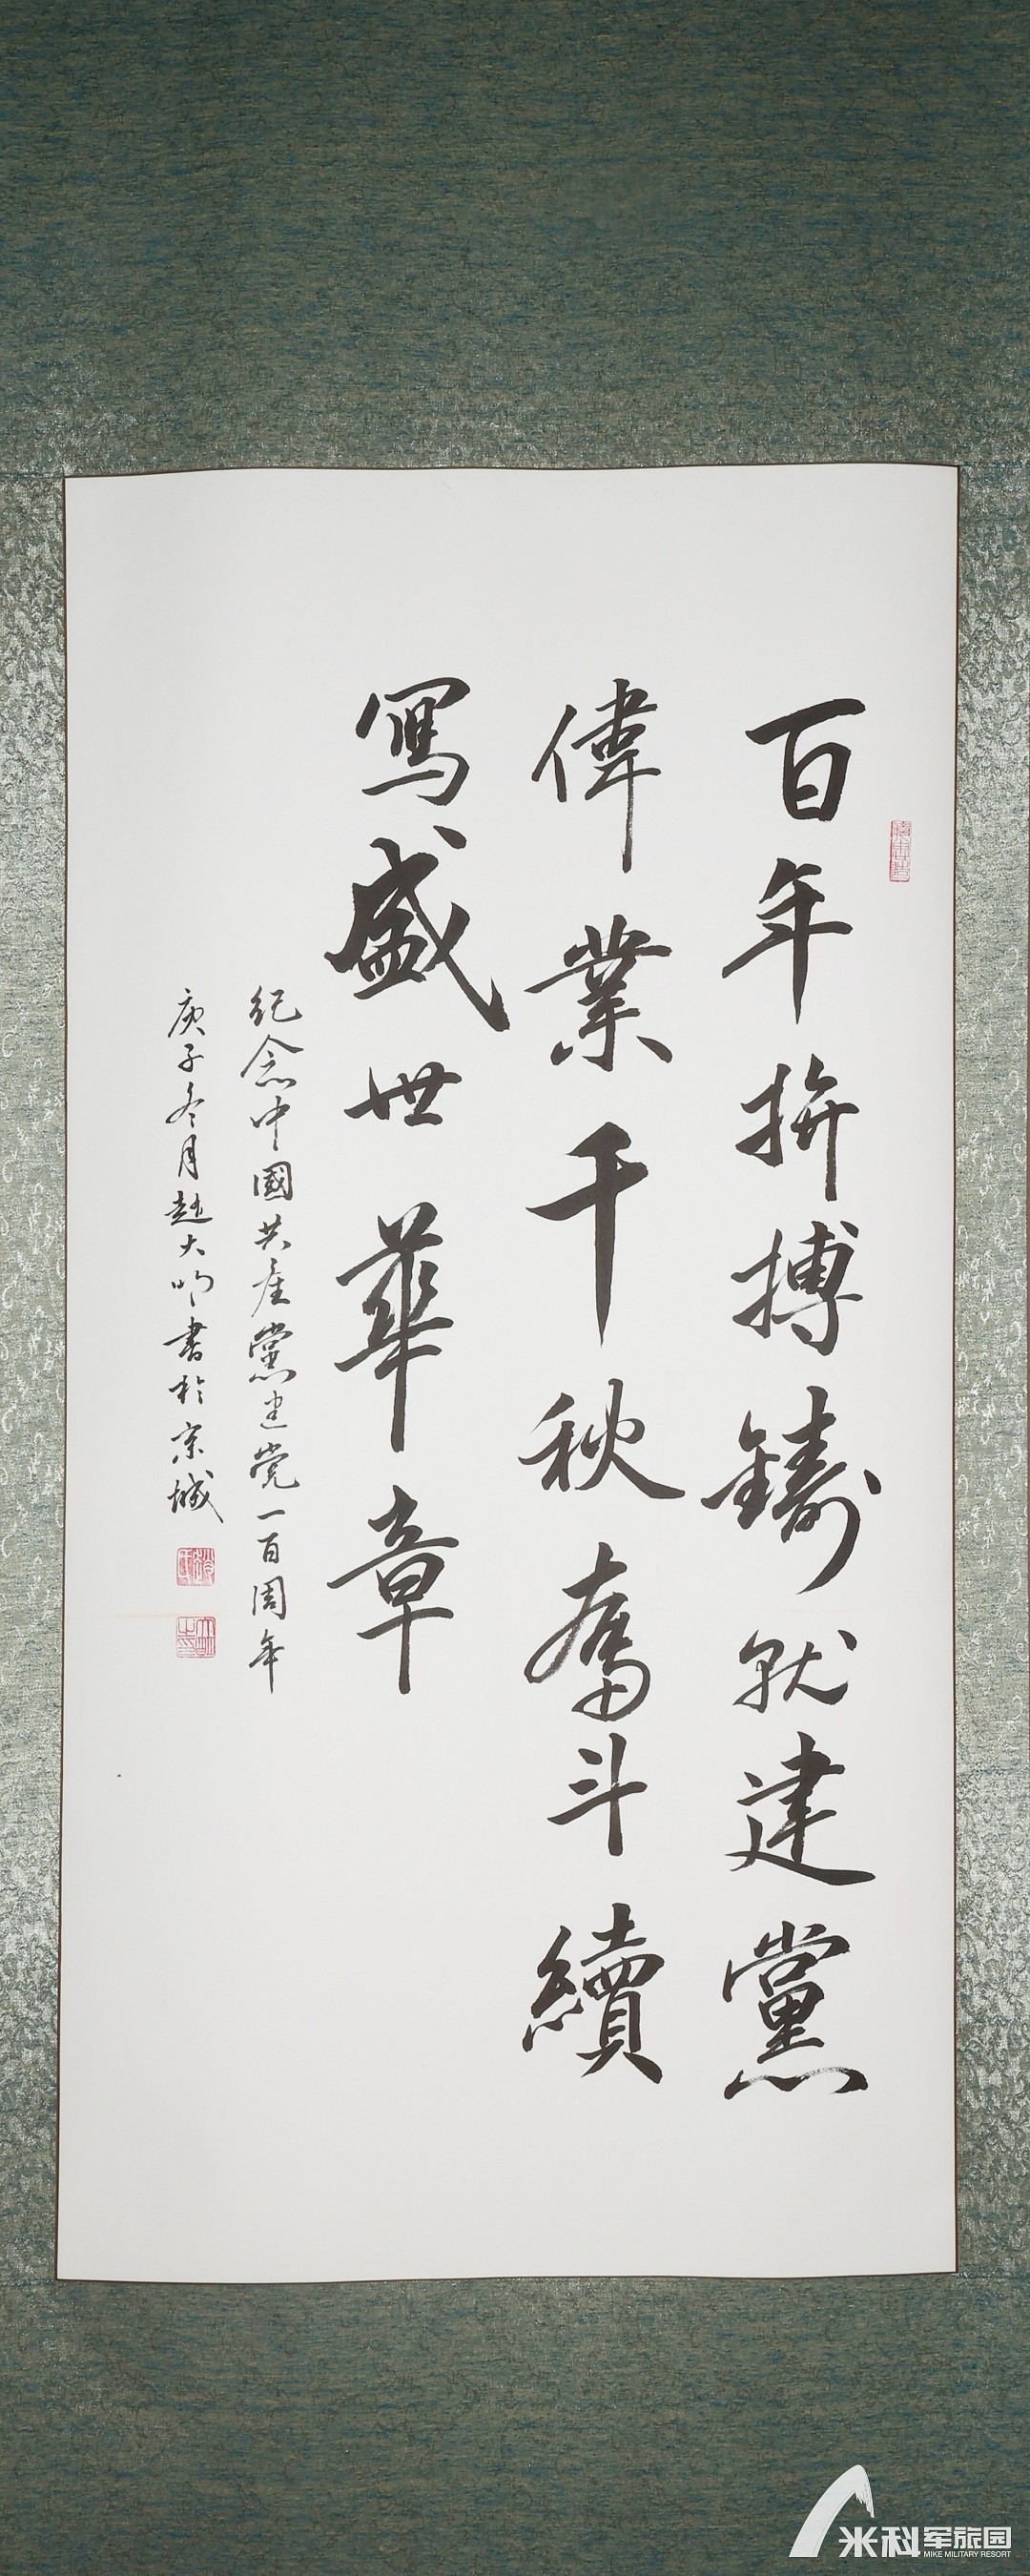 百年拚搏鑄就建黨
偉業千秋奮斗續
寫盛世華章
紀念中國共產黨建党一百周年
庚子冬月赵大明書於京城
米科军旅园
MIKE MILITARY RESORT